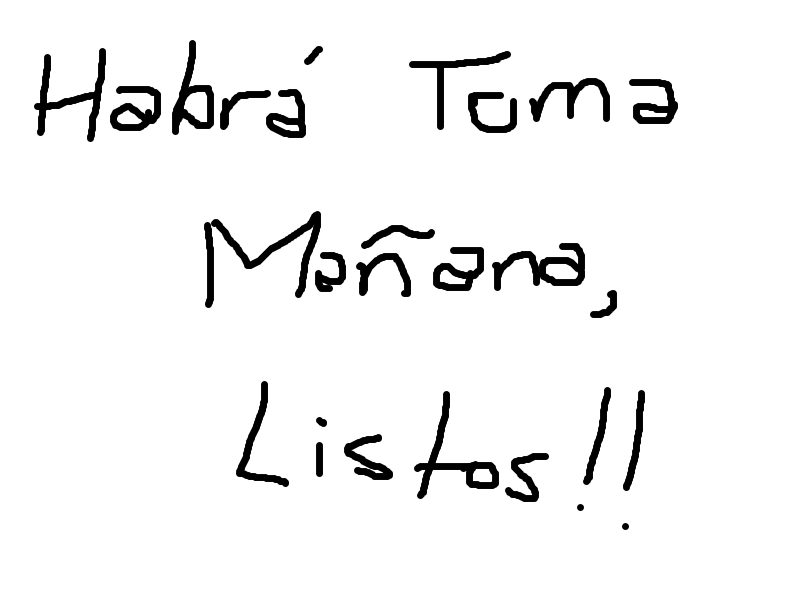 Habrá Toma
Mañana,
Listos!!